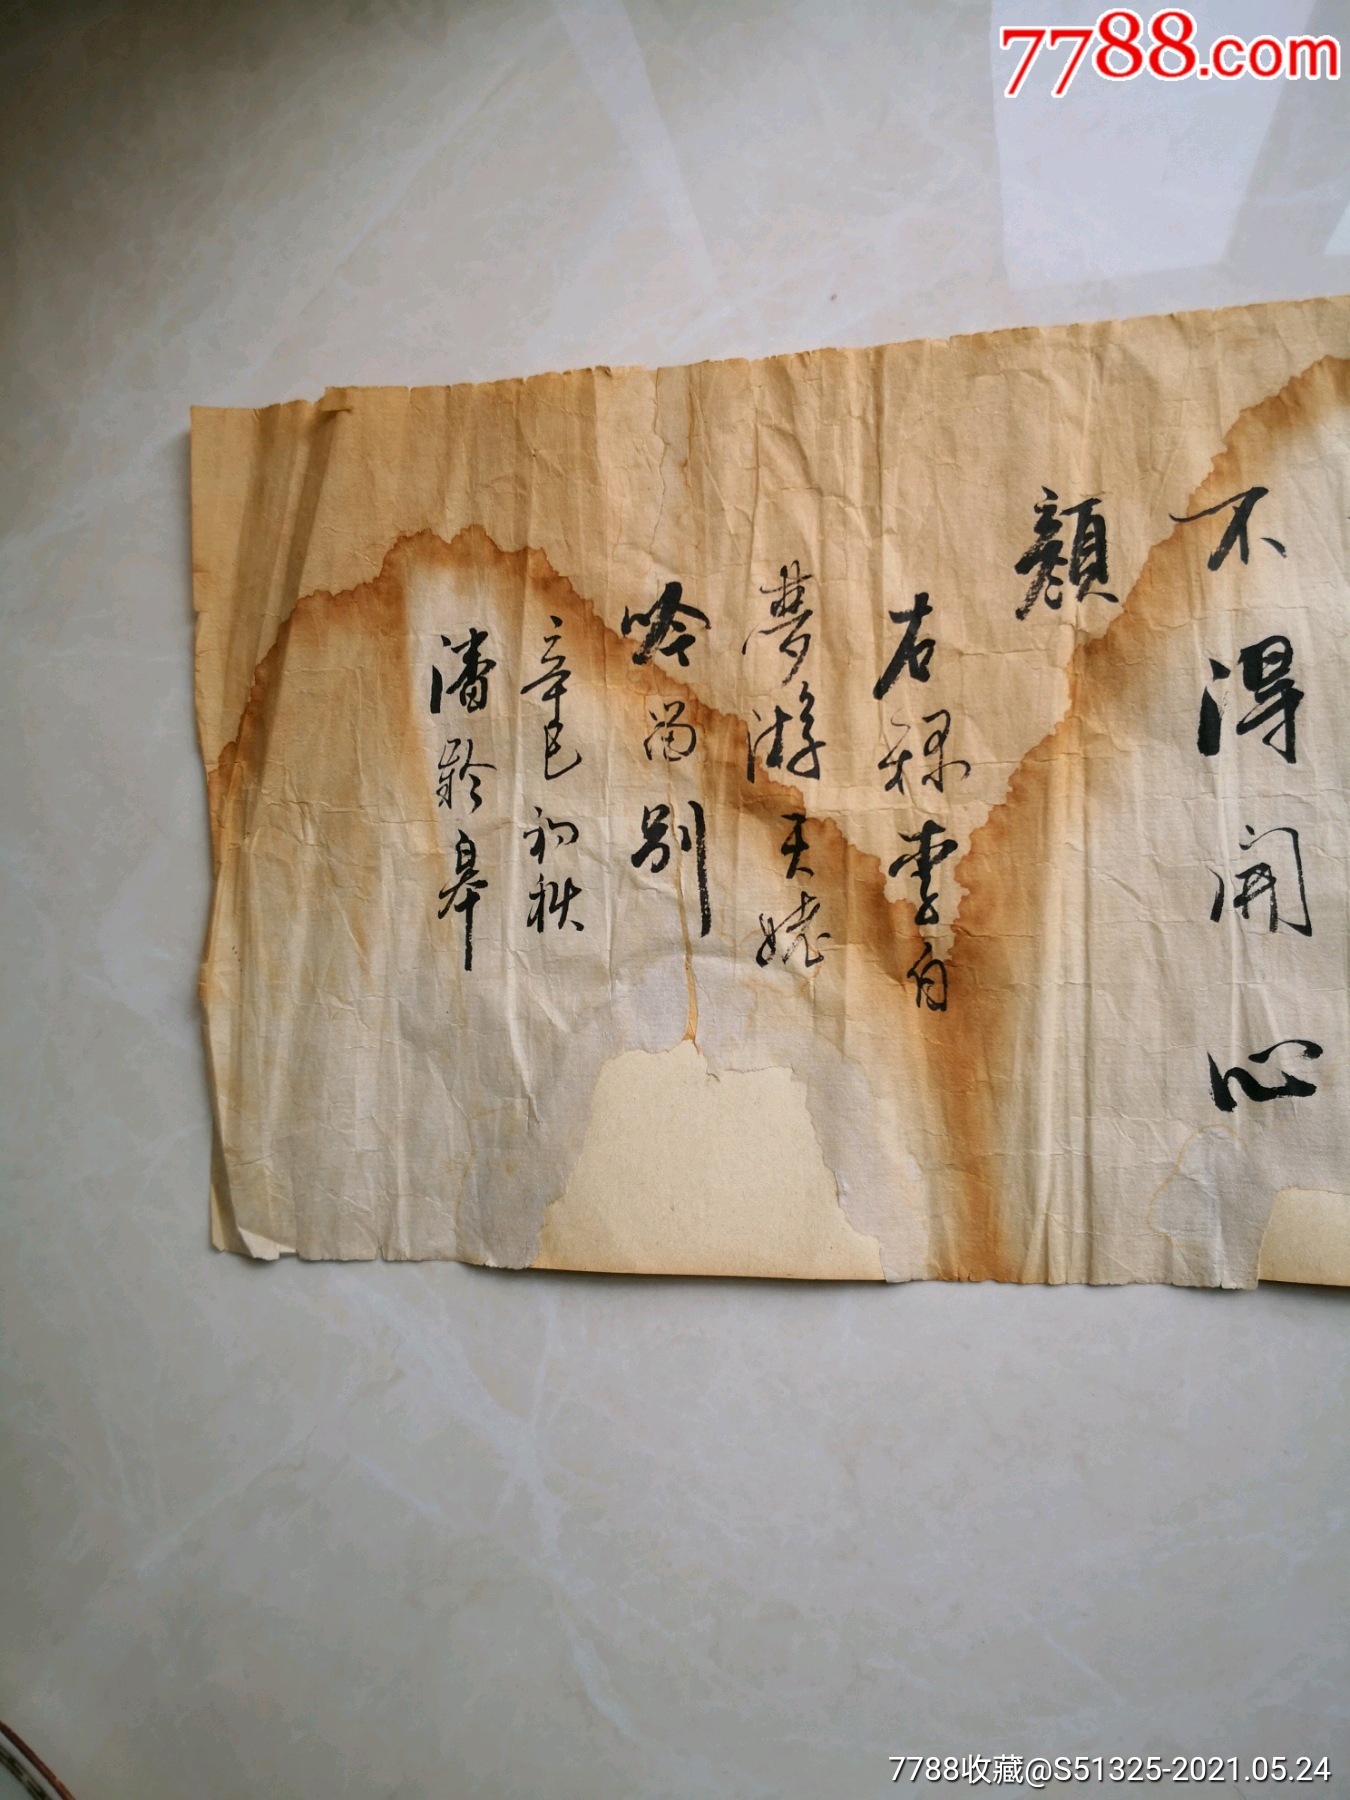 7788.com
不得開心
顏
右録李白
夢游天姥
吟留别
辛巳初秋
潘齡皋
7788收藏@S51325-2021.05.24